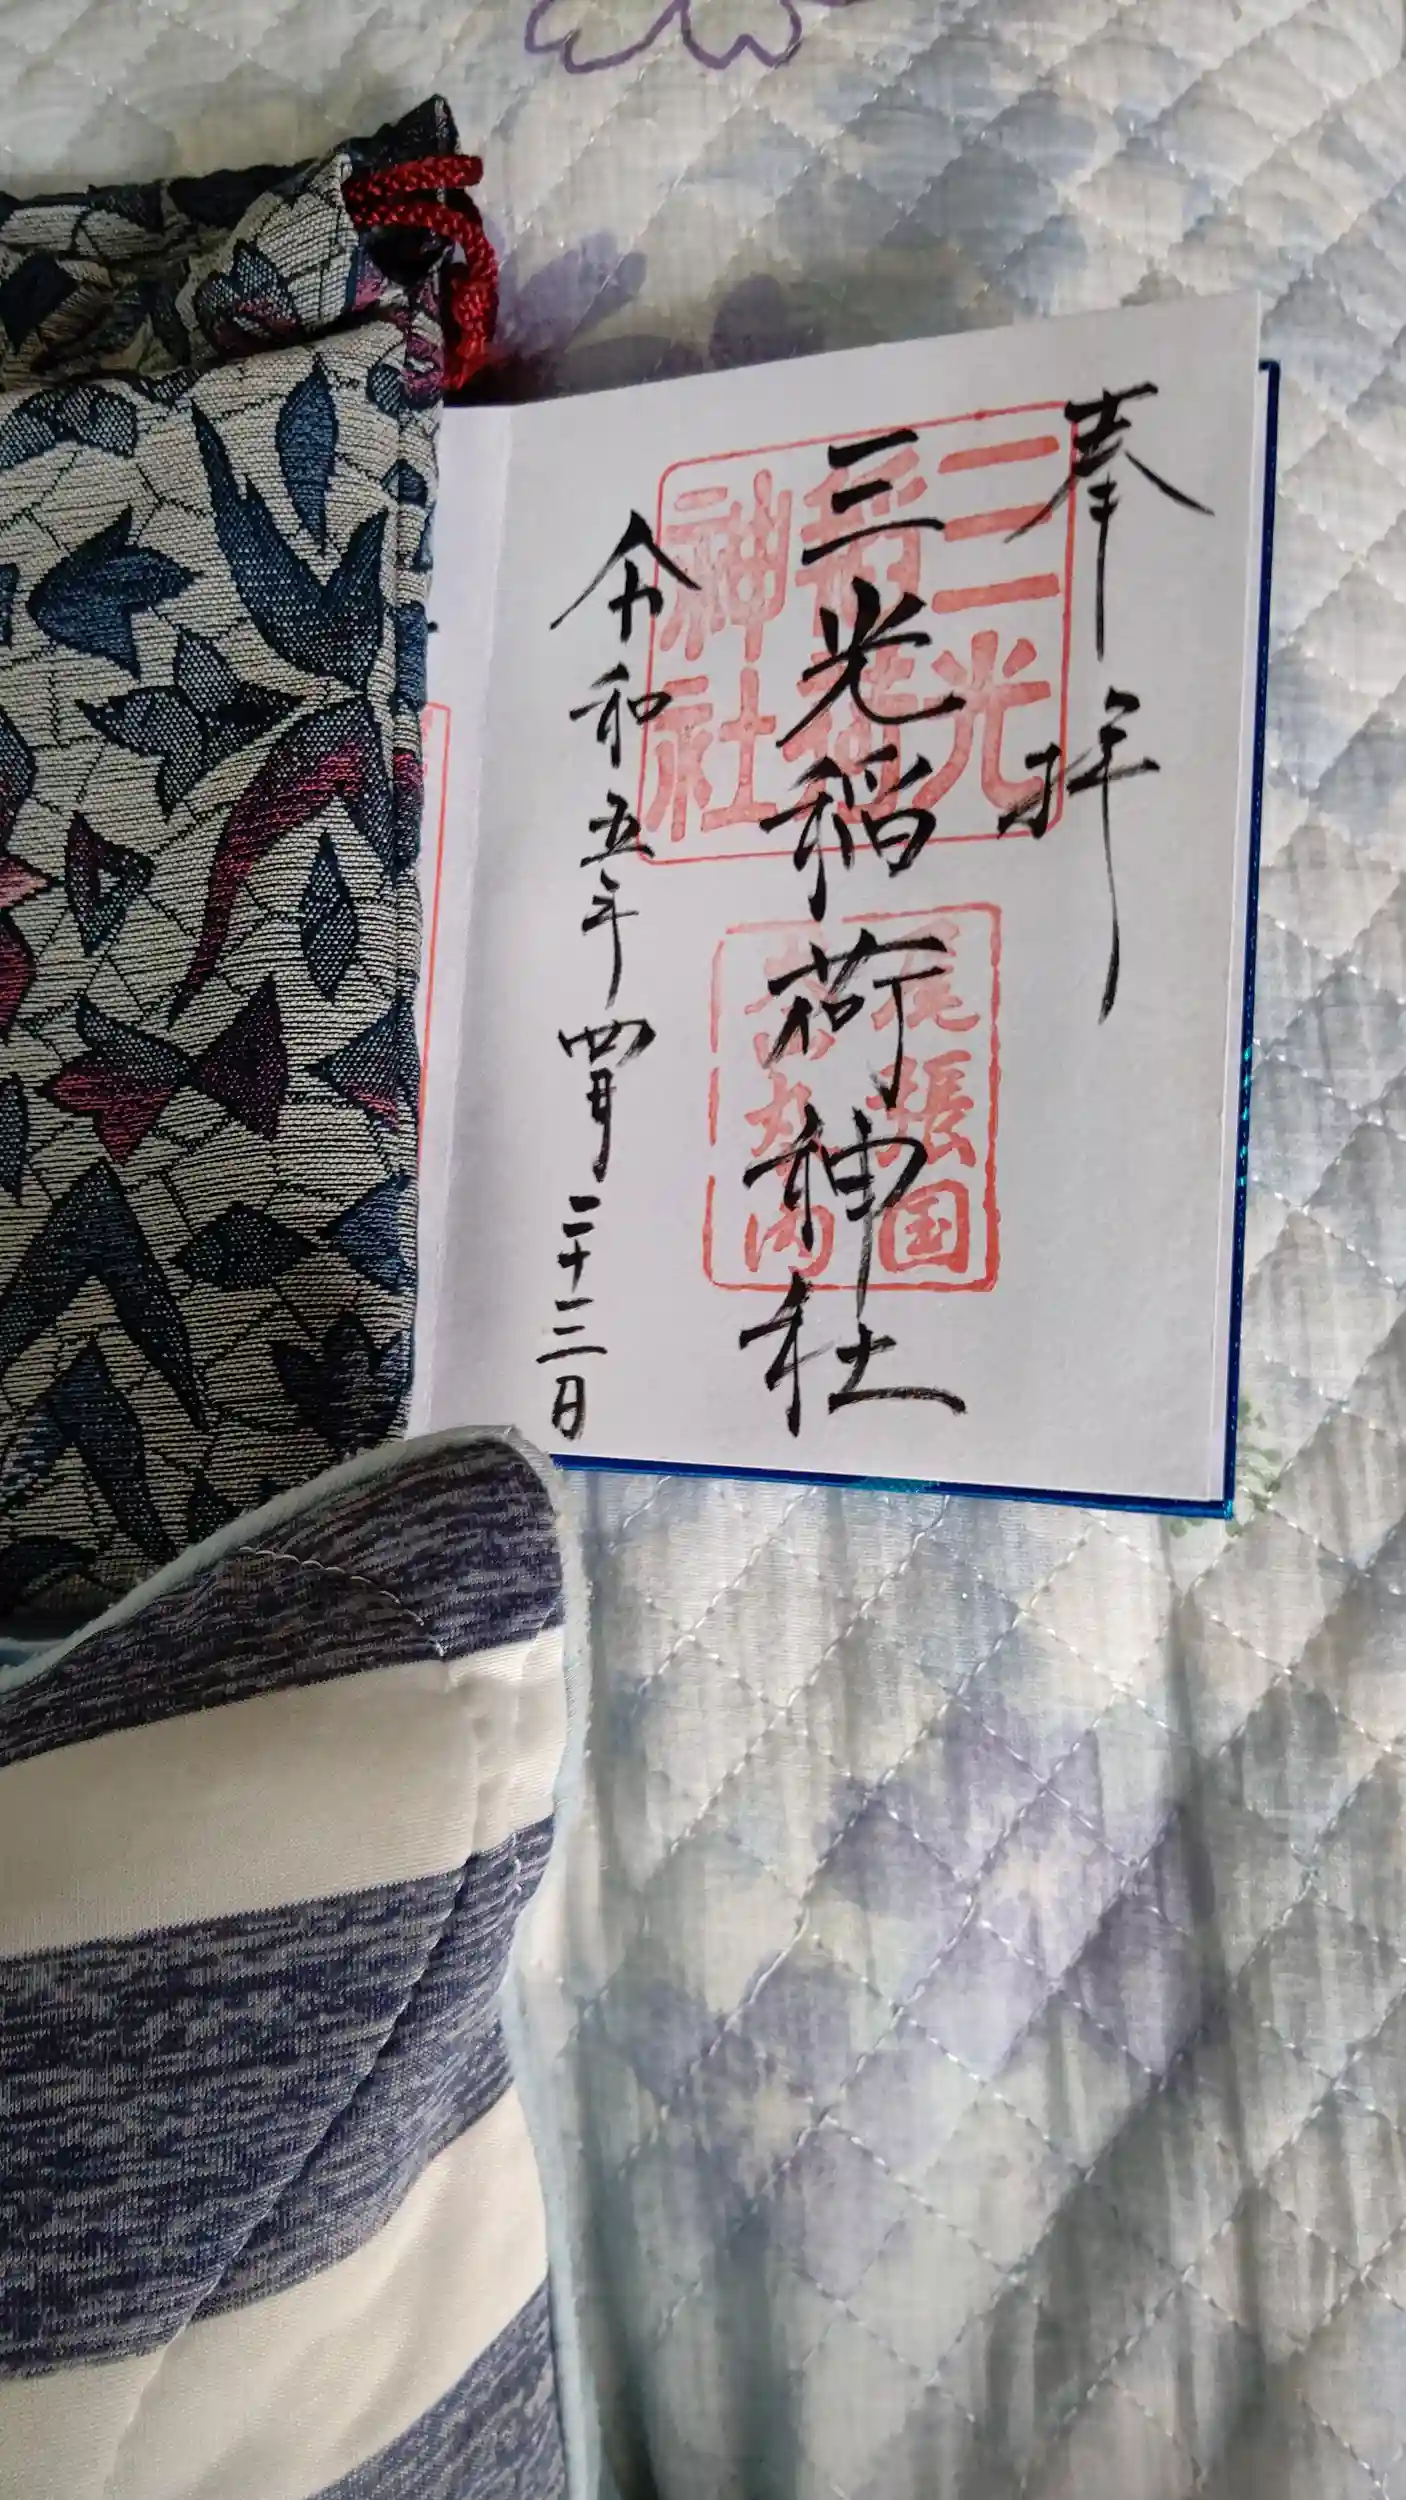 奉拝
三光稲荷神社
令和五年四月二十三日
三光
稲荷
神社
尾張国
丸内